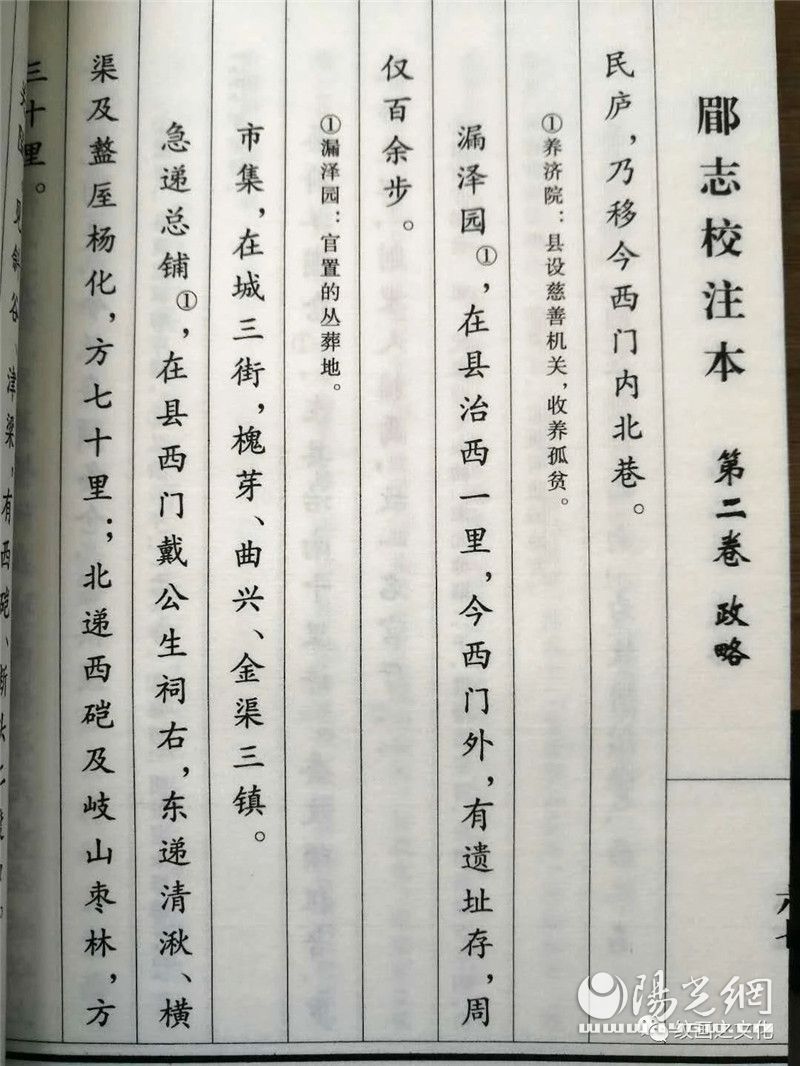 郿志校注本 第二卷 政略
民庐，乃移今西门内北巷。
①养济院：县设慈善机关，收养孤贫。
漏泽园①，在县治西一里，今西门外，有遗址存，周
仅百余步。
①漏泽园：官置的丛葬地。
市集，在城三街，槐芽、曲兴、金渠三镇。
急递总铺①，在县西门戴公生祠右，东递清湫、横
渠及盩厔杨化，方七十里；北递西硙及岐山枣林，方
三十里。
津梁，有西硙、
六七
陽光網
www.
绞画之文化